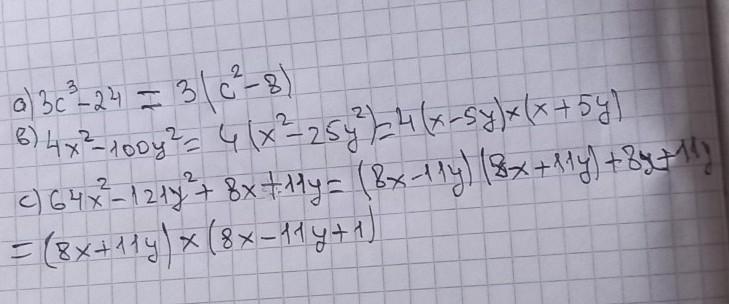 a) 3c³-24 = 3(c²-8)
b) 4x²-100y² = 4(x²-25y²)=4(x-5y)×(x+5y)
c) 64x²-121y²+8x+11y=(8x-11y)(8x+11y)+8x+11y
=(8x+11y)×(8x-11y+1)